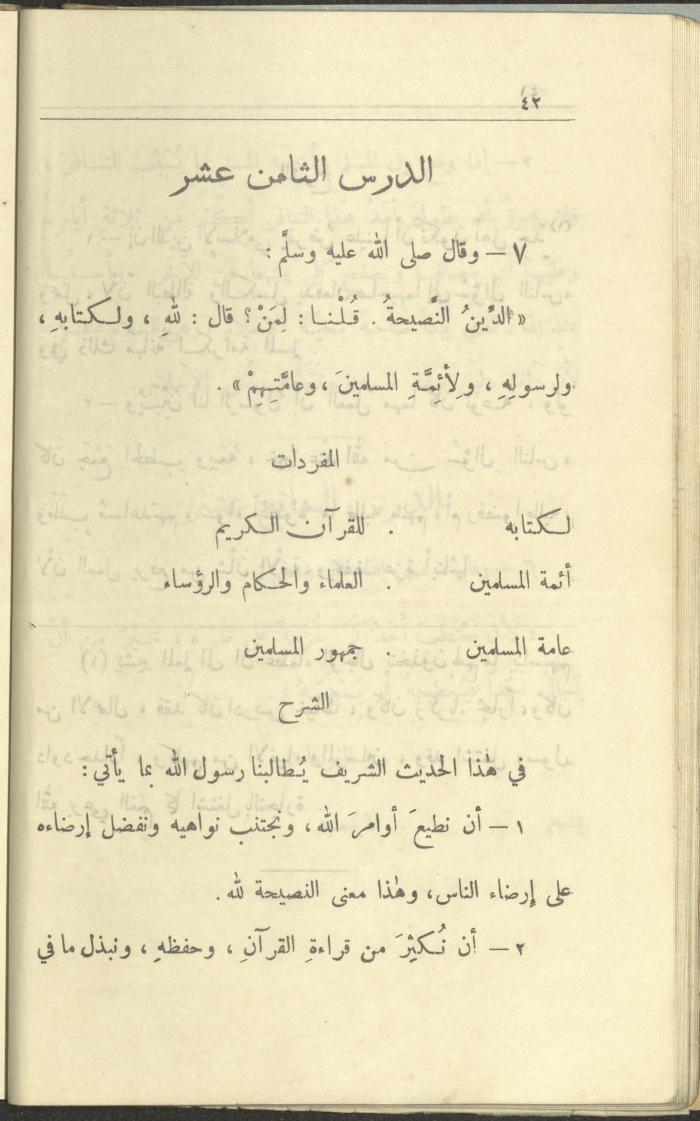 ٤٢
الدرس الثامن عشر
٧ — وقال صلى الله عليه وسلَّم :
« الدِّينُ النَّصيحةُ . قُلْنـا : لِمَنْ ؟ قال : للهِ ، ولـكتابهِ ،
ولرسولِهِ ، ولِأَئِمَّةِ المسلمينَ ، وعامَّتِهِمْ » .
المفردات
لـكتابه . للقرآن الـكريم
أئمة المسلمين . العلماء والحـكام والرؤساء
عامة المسلمين . جمهور المسلمين
الشرح
في هٰذا الحديث الشريف يُطالبنا رسول الله بما يأتي :
١ — أن نطيعَ أوامرَ الله ، ونجتنب نواهيه ونفضل إرضاءه
على إرضاء الناس ، وهٰذا معنى النصيحة لله .
٢ — أن نُـكثِرَ من قراءةِ القرآنِ ، وحفظهِ ، ونبذل ما في